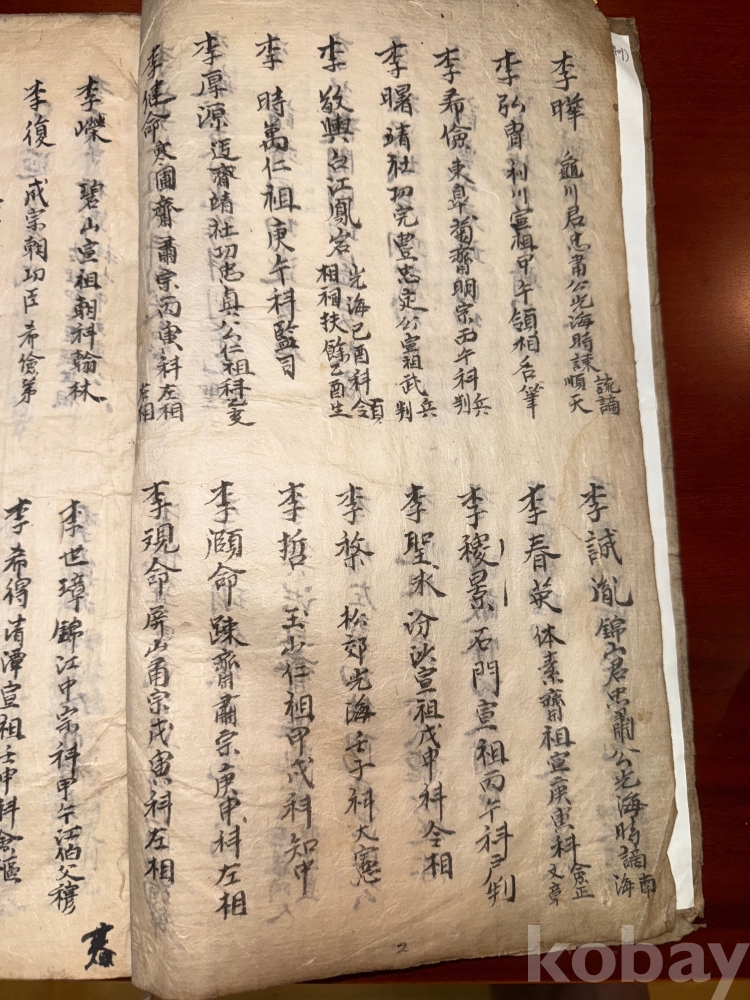 李曄 龜川君忠肅公光海時諫順天 疏謫
李弘胄 利川宣祖甲午領相名筆
李希儉 東皐菊齋明宗丙午科兵判
李曙 靖社功完豊忠定公宣祖武兵判
李敬輿 白江鳳岩 光海己酉科領相祠扶餘乙酉生
李時萬 仁祖庚午科監司
李厚源 迃齋靖社功忠貞公仁祖科乙亥
李健命 寒圃齋肅宗丙寅科左相
李誠胤 錦山君忠肅公光海時謫南海
李春英 体素齋祖宣庚寅科僉正文章
李稷景 石門宣祖丙午科尹判
李聖求 汾沙宣祖戊申科令相
李楘 松郊光海壬子科大憲公
李哲 玉山仁祖甲戌科知中
李頤命 踈齋肅宗庚申科左相
李觀命 屛山甫宗戊寅科左相
李嶸 碧山宣祖朝科翰林
李復 成宗朝功臣希儉弟
李世璋 錦江中宗科甲午江伯父穆
李希得 淸潭宣祖壬申科
2
kobay